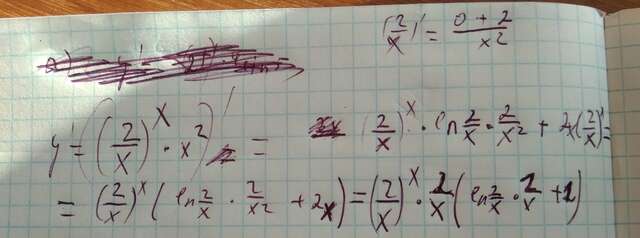 (2/x)' = (0 + 2)/x²
y' = ((2/x)^x · x²)' = (2/x)^x · ln 2/x · 2/x² + 2x(2/x)^x =
= (2/x)^x (ln 2/x · 2/x² + 2x) = (2/x)^x · 2/x (ln 2/x · 2/x + 1)